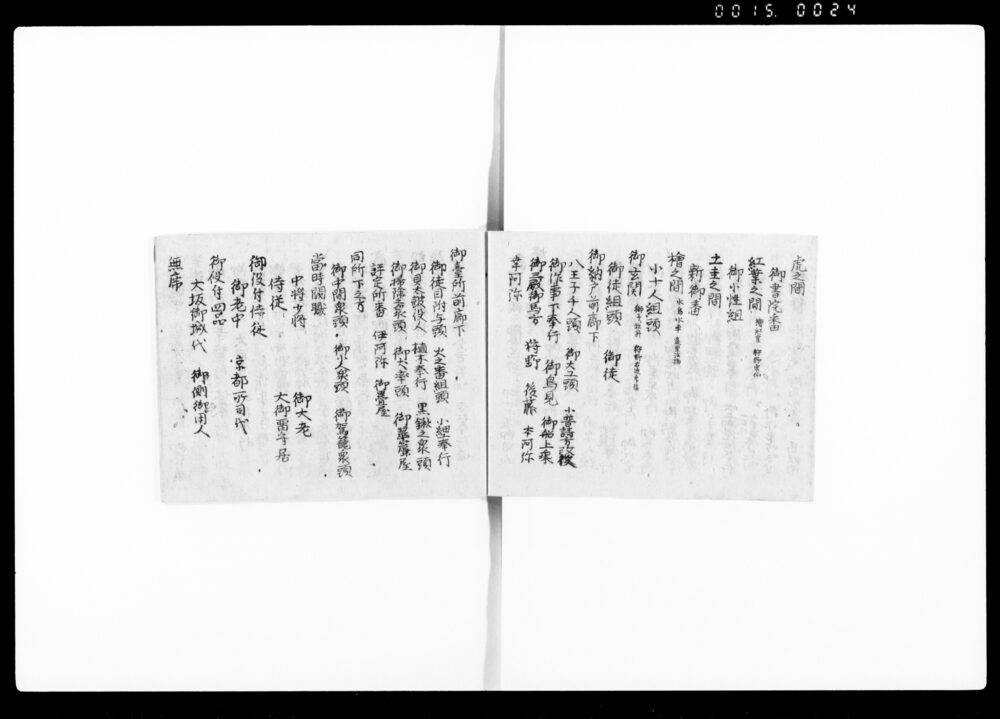 0015. 0024
虎之間
御書院番
紅葉之間
御小性組
土圭之間
新御番
檜之間
小十人組頭
御玄関
御徒組頭 御徒
御納戸前廊下
八王子千人頭 御大工頭 小普請方改役
御作事下奉行 御鳥見 御船上乗
御厩御馬方 狩野 後藤 本阿弥
幸阿弥
御臺所前廊下
御徒目附与頭 火之番組頭 小細奉行
御貝太鼓役人 植木奉行 黒鍬之衆頭
御掃除衆頭 御犬牽頭 御翠簾屋
評定所番 伊阿弥 御疊屋
同所下之方
御中間衆頭 御小人衆頭 御駕籠衆頭
當時闕職
中将少将 御大老
侍従 大御留守居
御役付侍従
御老中 京都所司代
御役付四品
大坂御城代 御側御用人
無席